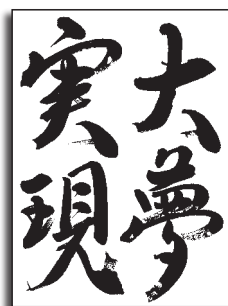 大夢
実現